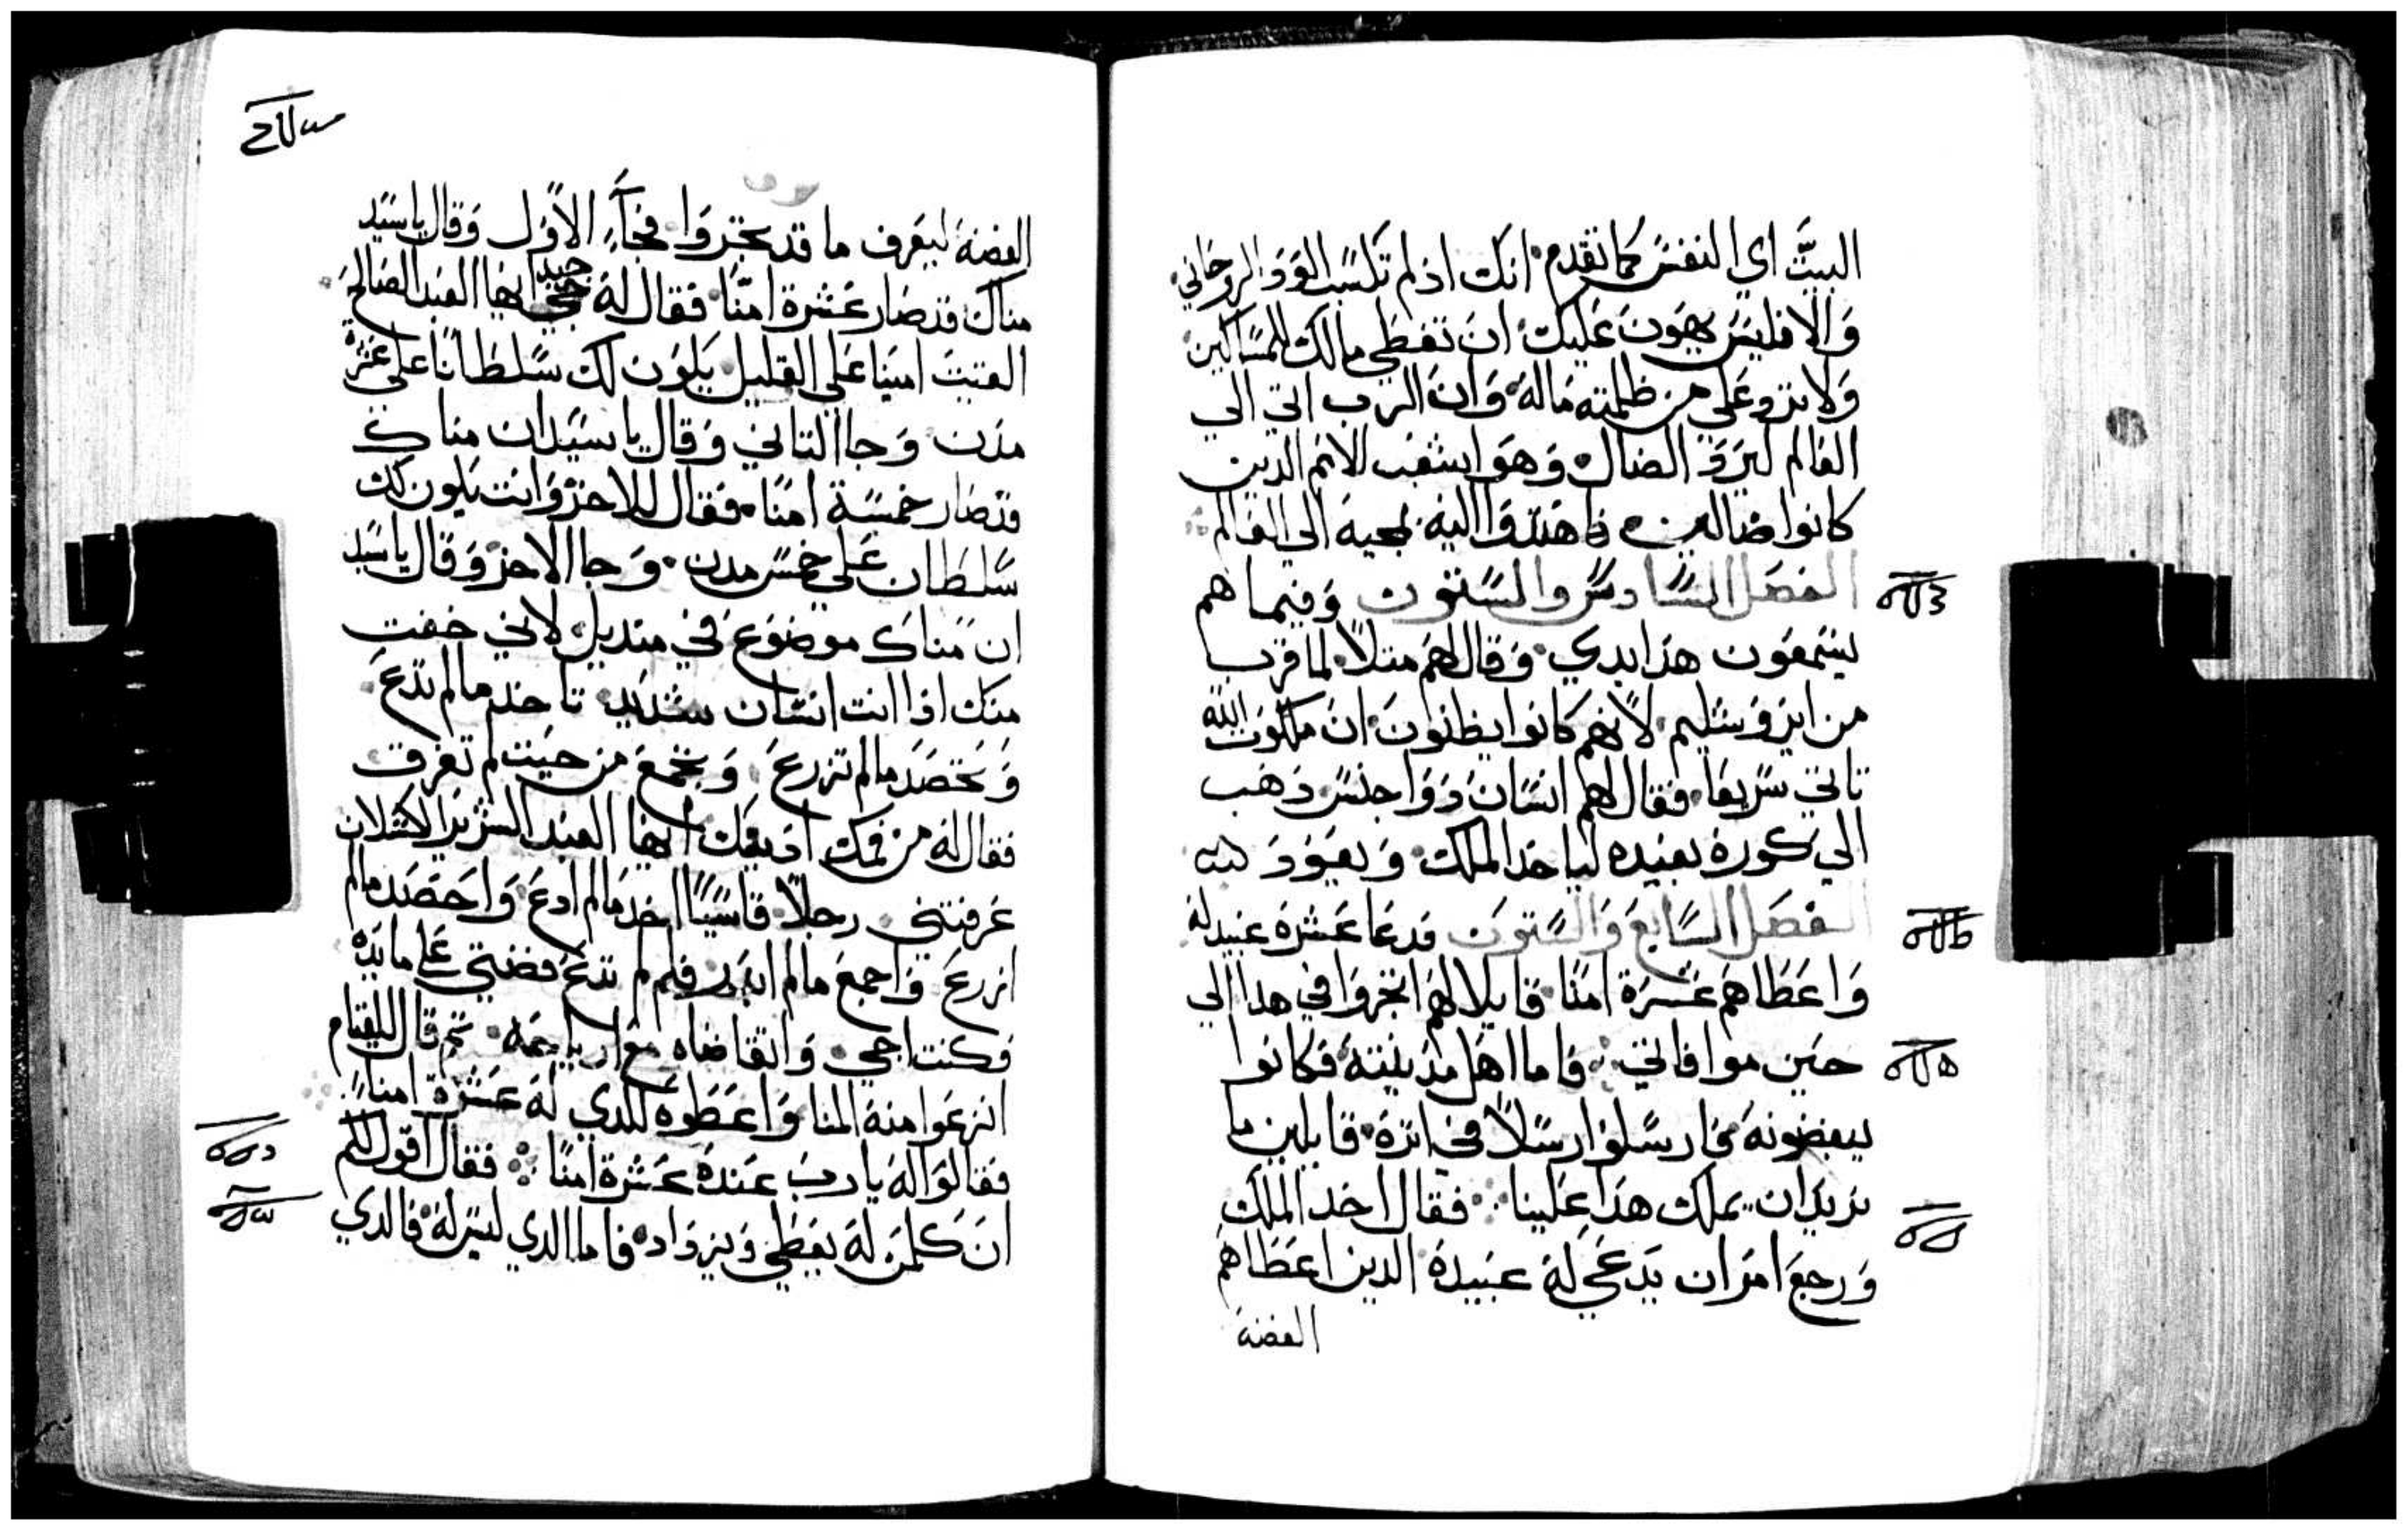 البيت اي النفس كما تقدم انك اذ لم تكسب القود الروحاني
والا فليس يهون عليك ان تعطي مالك للمساكين
ولا تردو علي من ظلمته ماله وان الرب اتي الي
العالم ليرد الضال وهو ايشعب الامم الدين
كانوا ضالين فاهتدوا اليه بمجيه الي العالم
الفصل السادس والستون وفيما هم
يستمعون هذا بدي وقال لهم متلا لما قرب
من ايروشليم لانهم كانوا يظنون ان ملكوت الله
تاتي سريعا فقال لهم انسان دوا جنس دهب
الي كورة بعيده لياخد الملك ويعود
الفصل السابع والستون فدعا عشرة عبيد له
واعطاهم عشرة امنا قايلا لهم اتجروا في هدا الي
حين موافاتي فاما اهل مدينته فكانوا
يبغضونه فارسلوا رسلا في اترة قايلين ما
نريد ان يملك هدا علينا فقال اخد الملك
ورجع امر ان يدعي له عبيدة الدين اعطاهم
الفضة
الفضة ليعرف ما قد تجروا فجآء الاول وقال يا سيد
مناك قد صار عشرة امنا فقال له جيد ايها العبد الصالح
الفيت امينا علي القليل يكون لك سلطانا علي عشرة
مدن وجا التاني وقال يا سيد ان مناك
قد صار خمسة امنا فقال للاخر وانت يكون لك
سلطان علي خمس مدن وجا الاخر وقال يا سيد
ان مناك موضوع في منديل لاني خفت
منك ادا انت انسان شديد تاخد ما لم تدع
وتحصد ما لم تزرع وتجمع من حيت لم تفرق
فقال له من فمك ادينك ايها العبد الشرير الكسلان
عرفتني رجلا قاسيا اخد ما لم ادع واحصد ما لم
ازرع واجمع ما لم ابدر فلم لم تدع فضتي علي مايدة
فكنت اجي واتقاضاه مع ارباحه تم قال للقيام
انزعوا منه المنا واعطوه للدي له عشرة امنا
فقالوا له يا رب عنده عشرة امنا فقال اقول لكم
ان كلمن له يعطي ويزداد فاما الدي ليس له فالدي